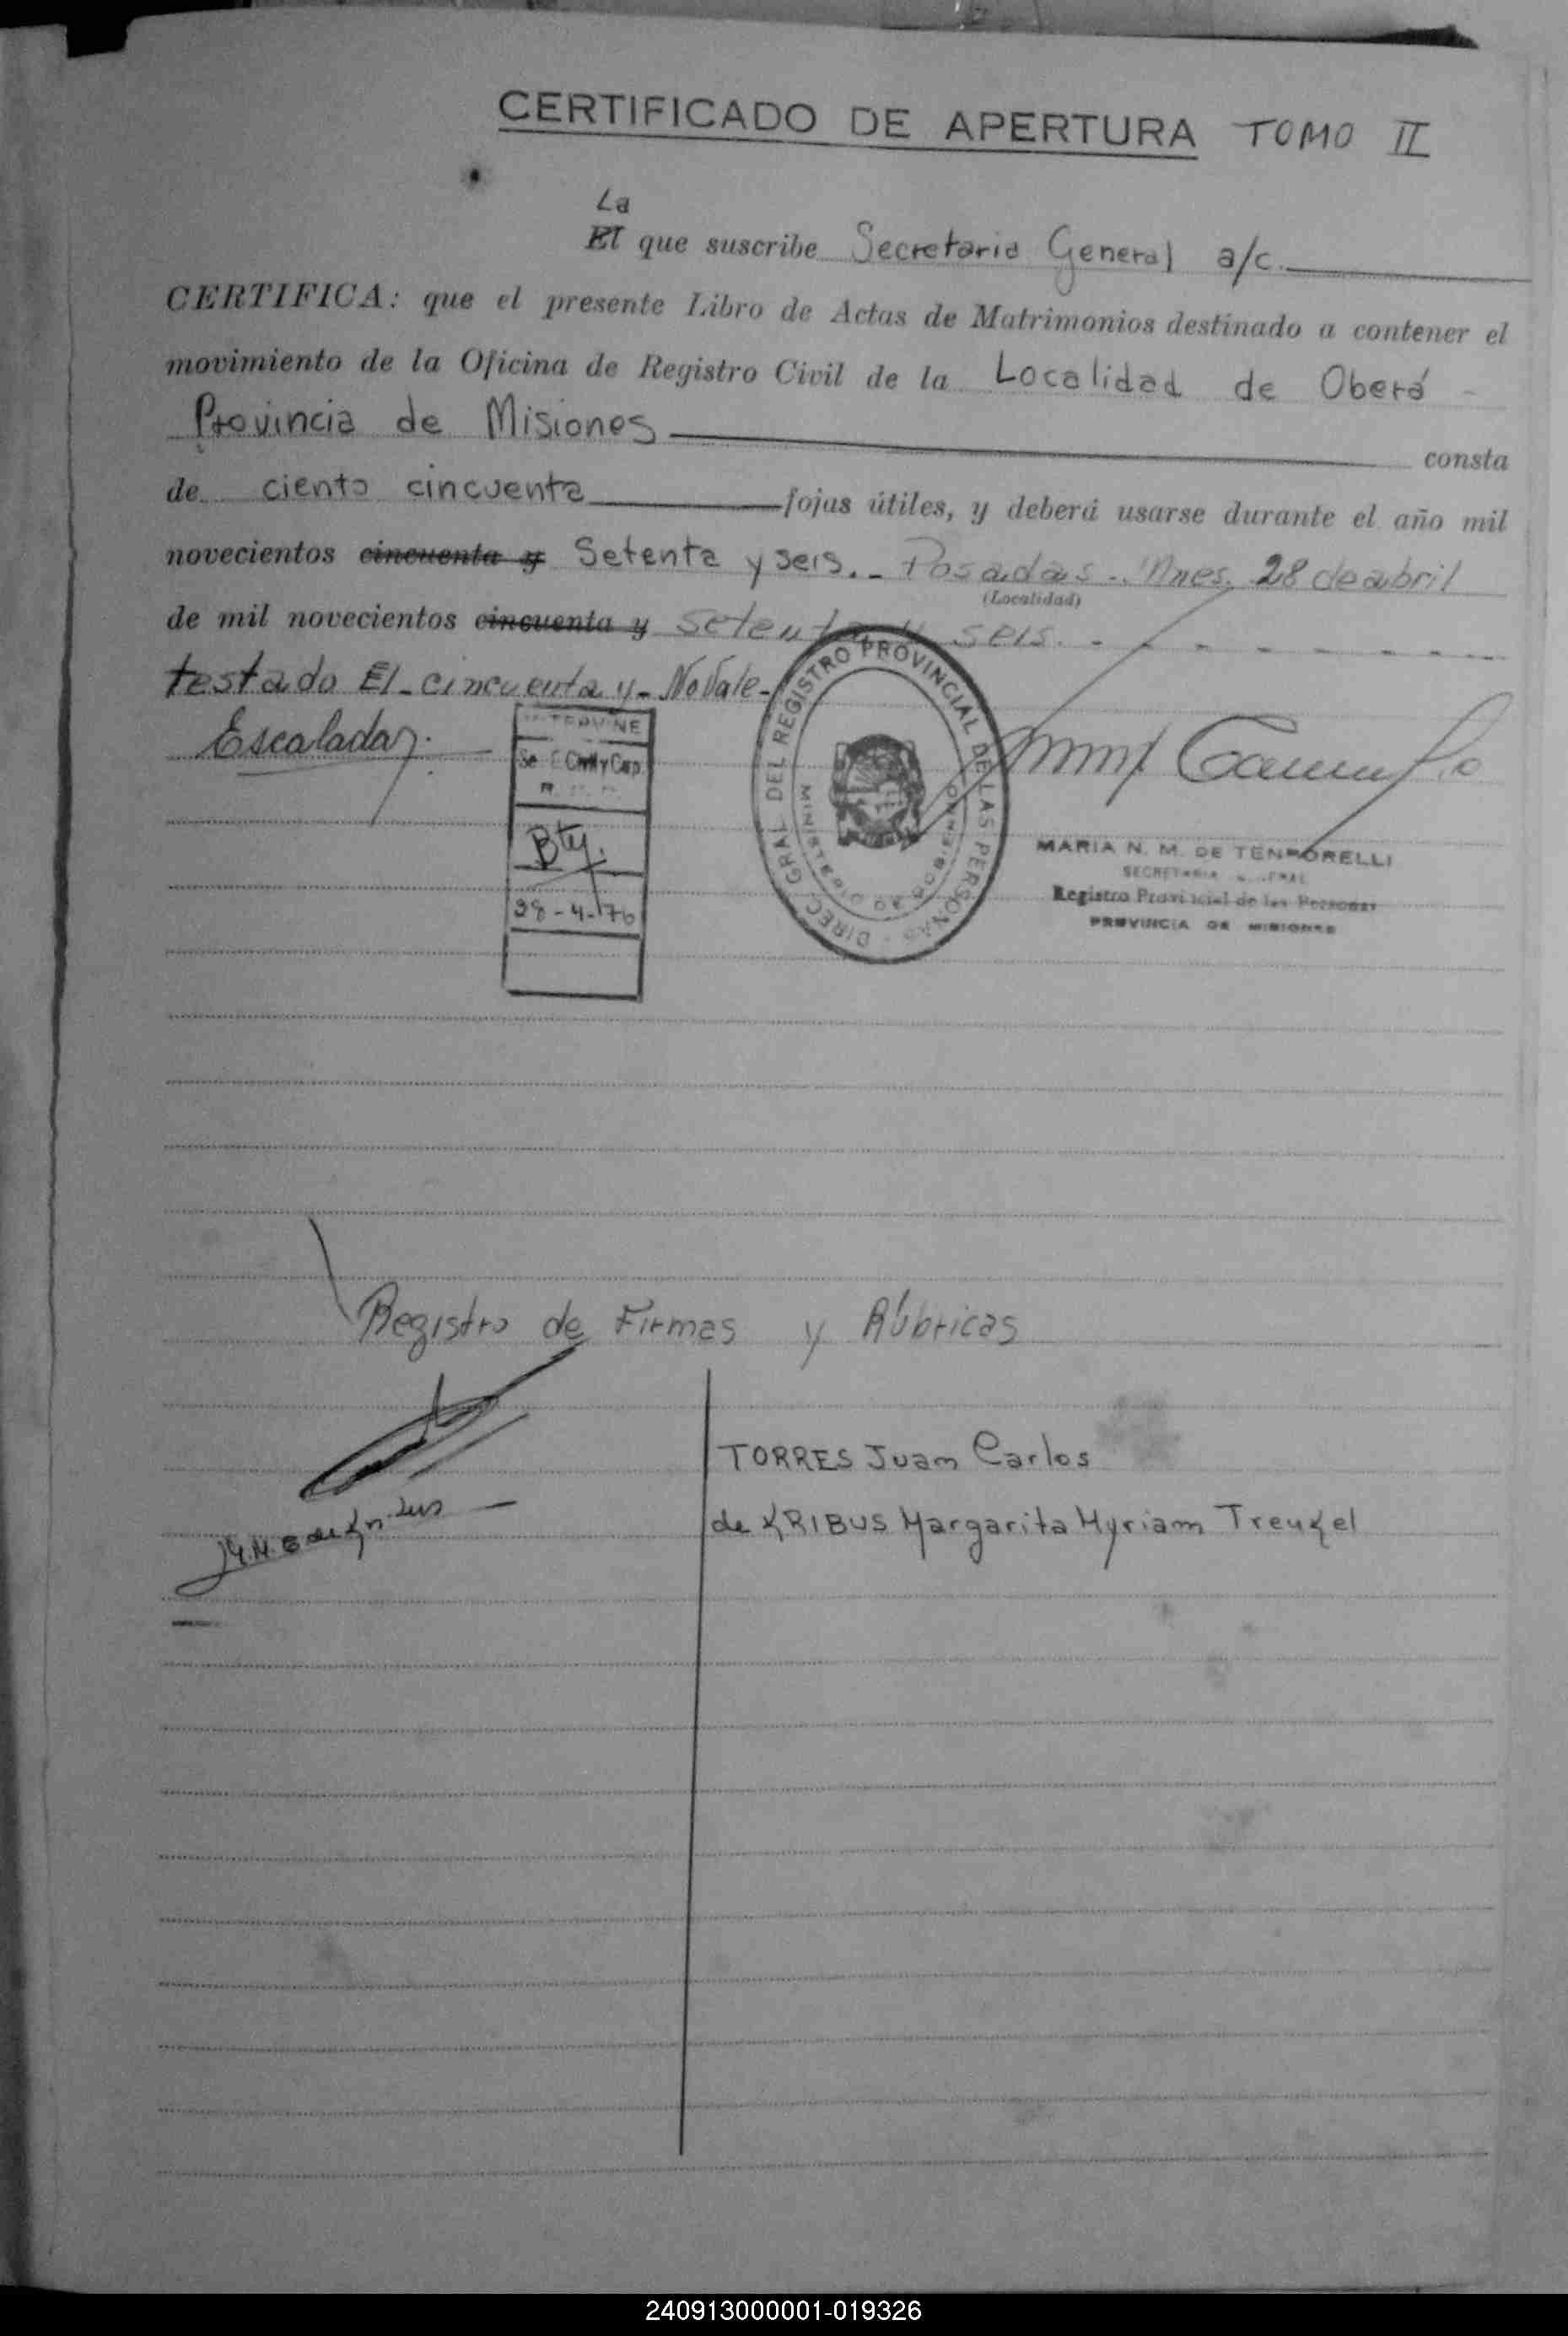 CERTIFICADO DE APERTURA TOMO II
La
El que suscribe Secretaria General a/c.
CERTIFICA: que el presente Libro de Actas de Matrimonios destinado a contener el
movimiento de la Oficina de Registro Civil de la Localidad de Oberá -
Provincia de Misiones consta
de ciento cincuenta fojas útiles, y deberá usarse durante el año mil
novecientos cincuenta y Setenta y seis.- Posadas. Mnes. 28 de abril
(Localidad)
de mil novecientos cincuenta y setenta y seis. - - - - - - -
testado El - cincuenta y - No Vale -
Escaladas
INTERVINE
Civil y Cap.
28-4-76
DIREC. GRAL DEL REGISTRO PROVINCIAL DE LAS PERSONAS
MINISTERIO DE GOBIERNO
MARIA N. M. DE TEMPORELLI
SECRETARIA GENERAL
Registro Provincial de las Personas
PROVINCIA DE MISIONES
Registro de Firmas y Rúbricas
TORRES Juan Carlos
de KRIBUS Margarita Myriam Trenkel
240913000001-019326